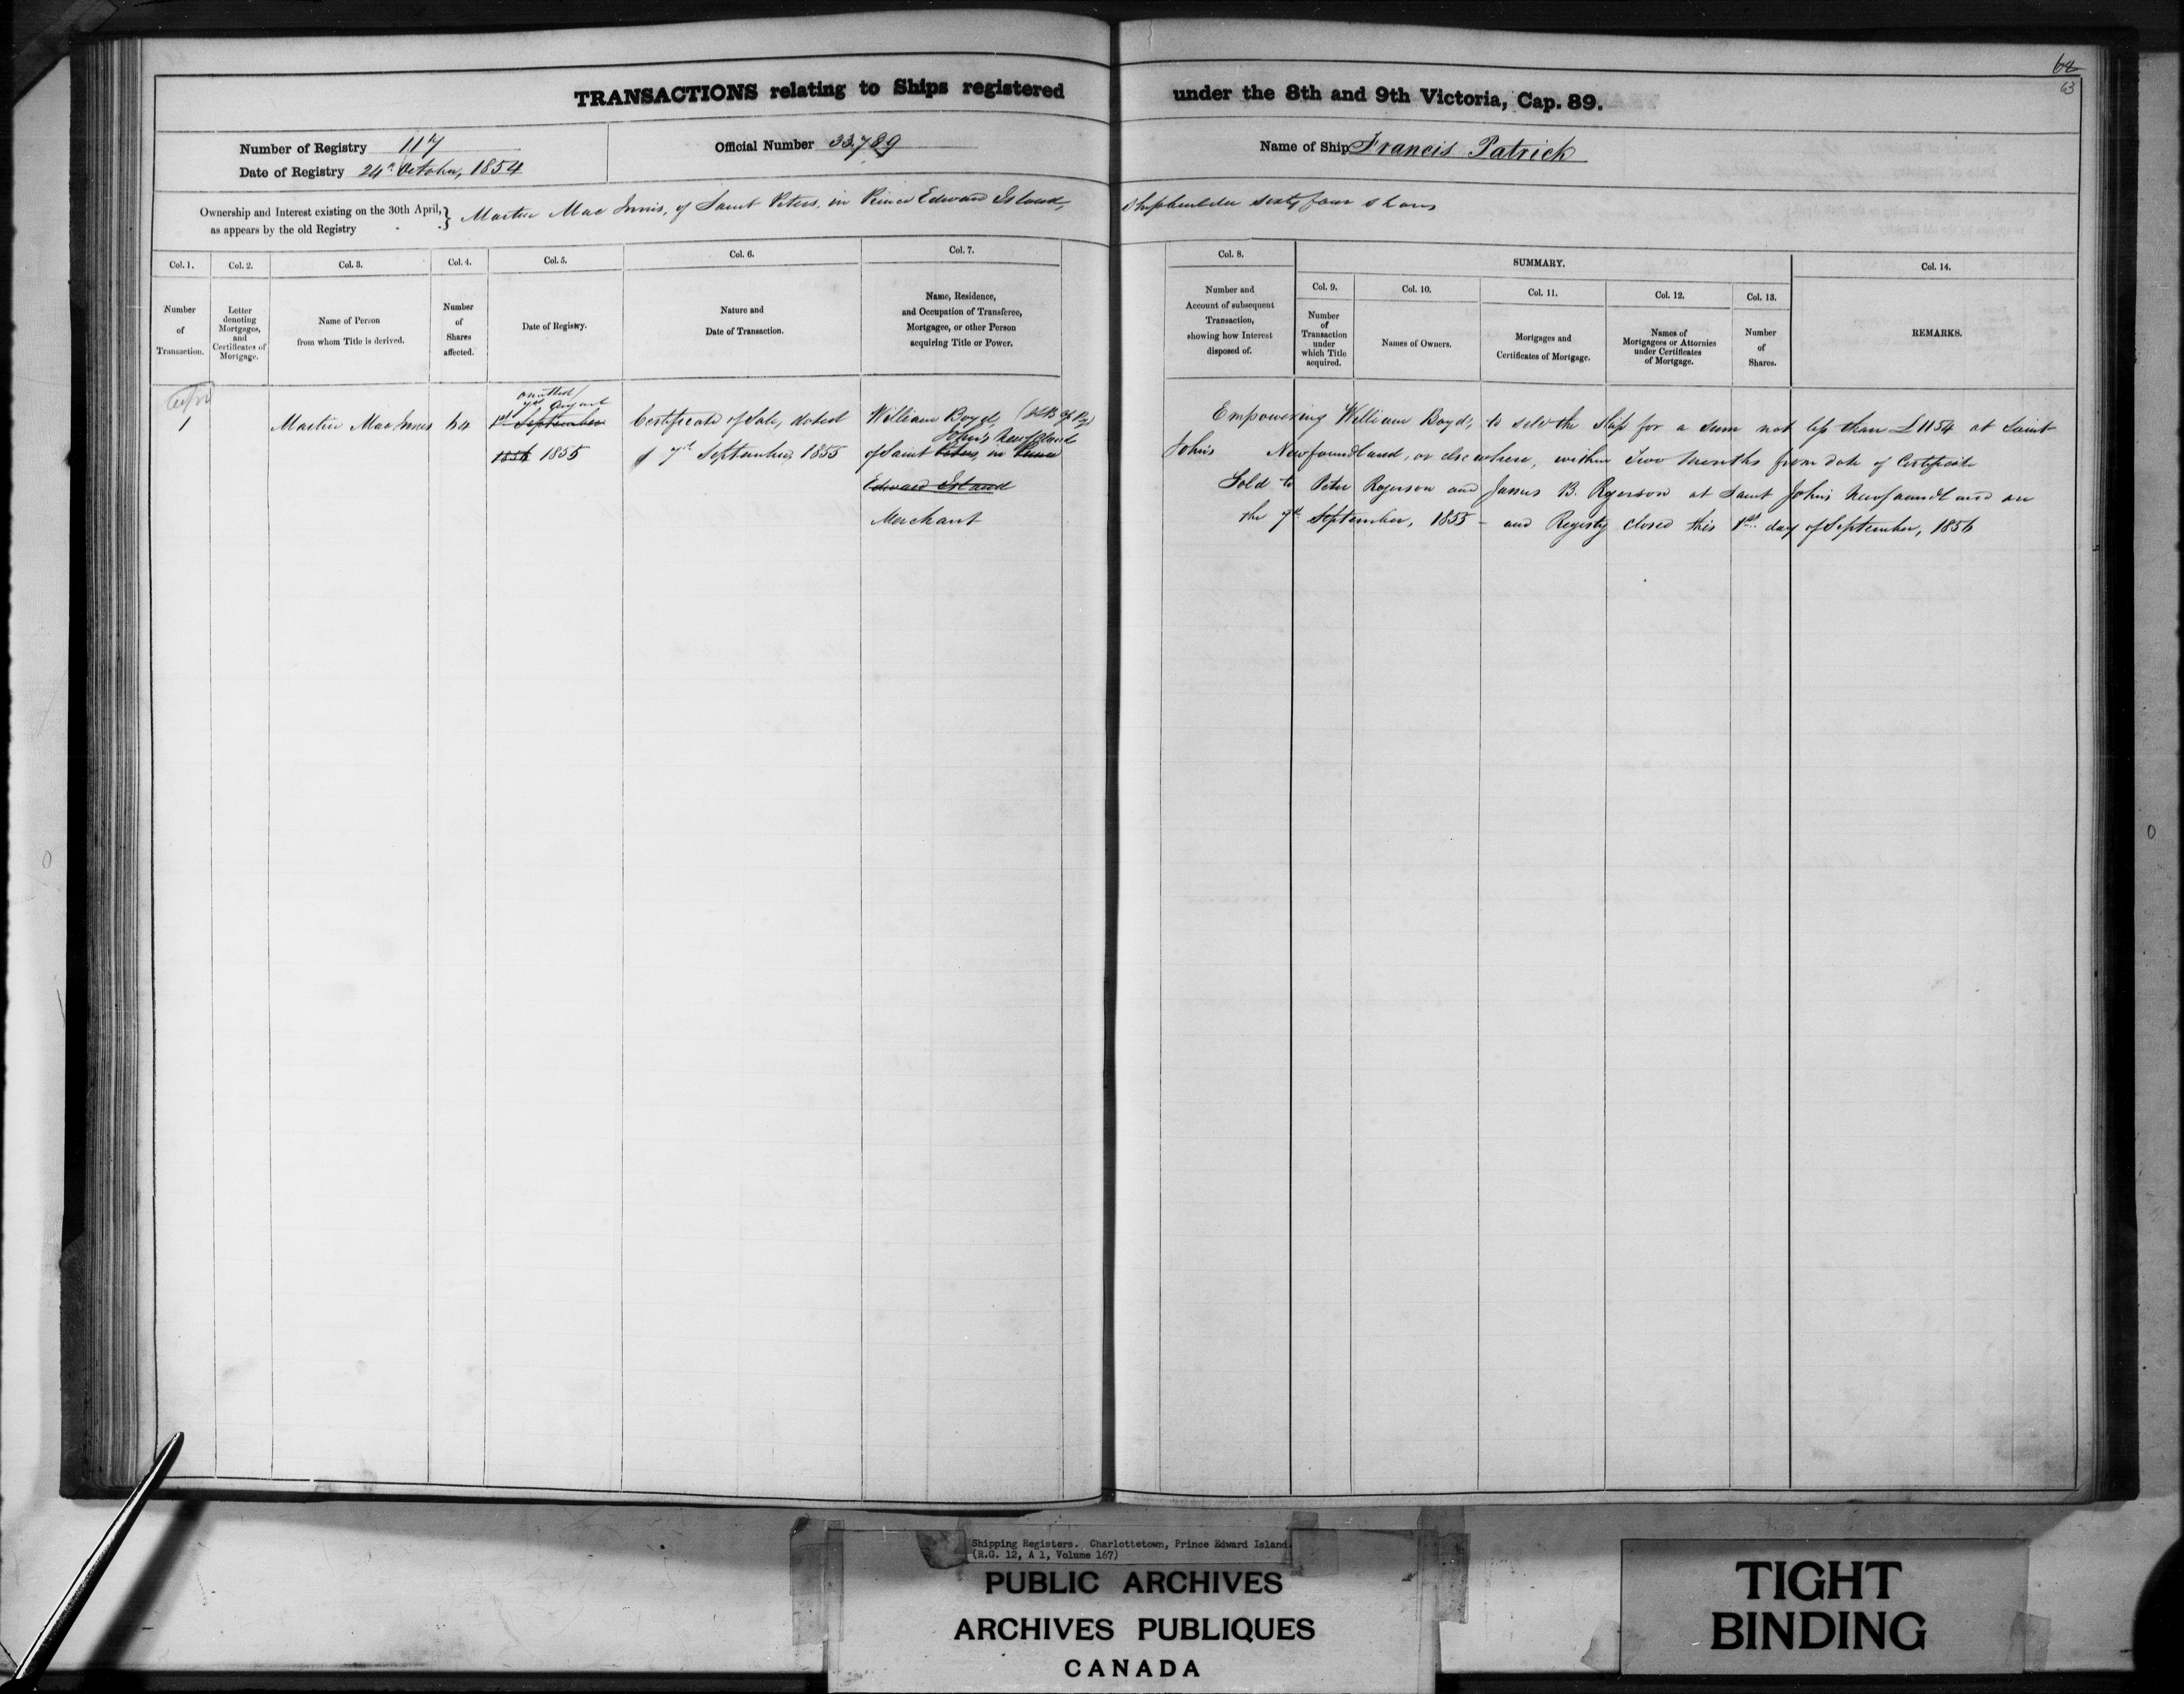 62
63
TRANSACTIONS relating to Ships registered under the 8th and 9th Victoria, Cap. 89.
Number of Registry 117
Date of Registry 24th October, 1854
Official Number 33,789
Name of Ship Francis Patrick
Ownership and Interest existing on the 30th April, as appears by the old Registry } Martin Mac Innis, of Saint Peters, in Prince Edward Island, Shipbuilder sixty four shares
Col. 1.
Number
of
Transaction.
Col. 2.
Letter
denoting
Mortgages,
and
Certificates of
Mortgage.
Col. 3.
Name of Person
from whom Title is derived.
Col. 4.
Number
of
Shares
affected.
Col. 5.
Date of Registry.
Col. 6.
Nature and
Date of Transaction.
Col. 7.
Name, Residence,
and Occupation of Transferee,
Mortgagee, or other Person
acquiring Title or Power.
Col. 8.
Number and
Account of subsequent
Transaction,
showing how Interest
disposed of.
SUMMARY.
Col. 9.
Number
of
Transaction
under
which Title
acquired.
Col. 10.
Names of Owners.
Col. 11.
Mortgages and
Certificates of Mortgage.
Col. 12.
Names of
Mortgagees or Attornies
under Certificates
of Mortgage.
Col. 13.
Number
of
Shares.
Col. 14.
REMARKS.
1
Martin Mac Innis
64
omitted
7th August
1st September
1856 1855
Certificate of Sale, dated
7th September, 1855
William Boyd,
John's Newfoundland
of Saint Peters, in Prince
Edward Island
Merchant
Empowering William Boyd, to sell the Ship for a sum not less than £1154 at Saint
John's Newfoundland, or elsewhere, within Two Months from date of Certificate
Sold to Peter Rogerson and James B. Rogerson at Saint John's Newfoundland on
the 7th September, 1855 - and Registry closed this 1st day of September, 1856
Shipping Registers. Charlottetown, Prince Edward Island.
(R.G. 12, A 1, Volume 167)
PUBLIC ARCHIVES
ARCHIVES PUBLIQUES
CANADA
TIGHT
BINDING